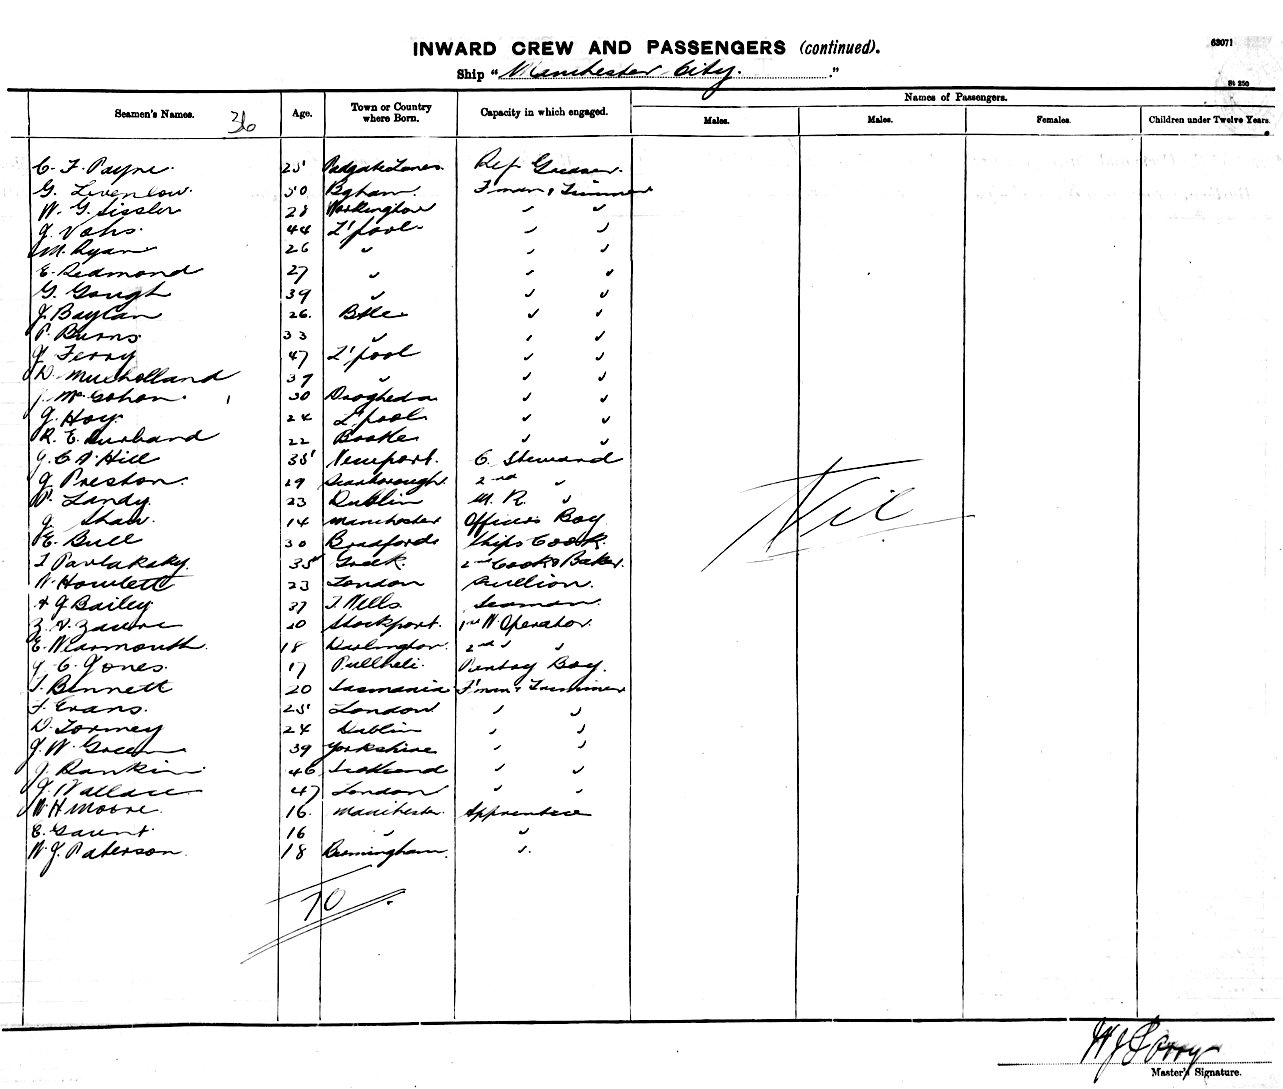 63071
INWARD CREW AND PASSENGERS (continued).
Ship "Manchester City."
St 250
Names of Passengers.
Seamen's Names. 36 Age. Town or Country where Born. Capacity in which engaged. Males. Males. Females. Children under Twelve Years.
C. F. Payne. 25 Padgate Lancs. Ref Greaser.
G. 50 F'man & Trimmer
W. G. Sissler 28 Workington " "
J. Vohs. 44 L'pool " "
M. Ryan 26 " " "
E. Redmond 27 " " "
G. Gough 39 " " "
J. Baylan 26. B'tle " "
P. Burns. 33 " " "
J. Ferry 47 L'pool " "
D. Mulholland 37 " " "
J. Mc 30 Drogheda " "
J. Hoy. 24 L'pool " "
R. E. Husband 22 Bootle " "
J. C. A. Hill 35 Newport. C. Steward
J. Preston. 29 Scarborough. 2nd "
P. Landy. 23 Dublin M. R. "
J. Shaw. 14 Manchester Officers Boy
E. Bull 30 Bradford Ships Cook.
T Pavlakaky. 35 Greek. 2nd Cook & Baker.
W. Howlett 23 London Scullion.
A J Bailey. 37 T. Wells. Seaman.
20 Stockport. 1st W. Operator.
E. Warmouth. 18 Darlington. 2nd " "
J. C. Jones. 17 Pullheli. Pantry Boy.
T. Bennett 20 Tasmania F'man & Trimmer
F. Evans. 25 London " "
D. Tormey 24 Dublin " "
J. W. Green 39 Yorkshire " "
J. Rankin. 46 Scotland " "
J. Wallace 47 London " "
W. H Moore. 16. Manchester. Apprentice
E. Gaunt. 16 " "
W. J. Paterson. 18 Birmingham. "
Nil
70
Master's Signature.